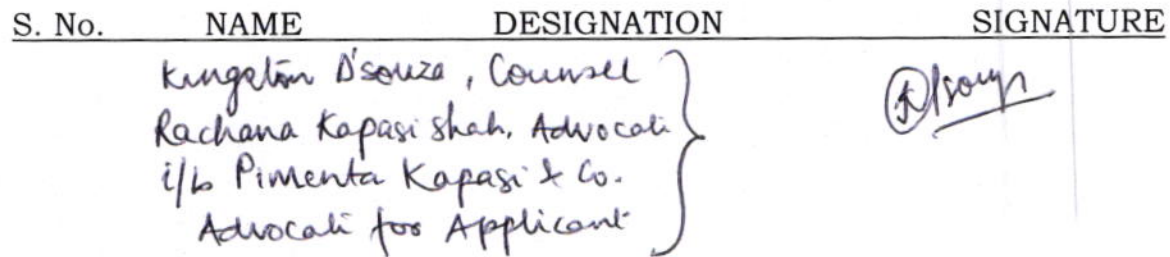 S. No. NAME DESIGNATION SIGNATURE
Kingston D'souza, Counsel
Rachana Kapasi Shah, Advocate
i/b Pimenta Kapasi & Co.
Advocate for Applicant